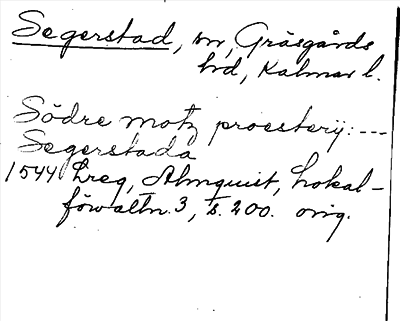 Segerstad, sn, Gräsgårds
hd, Kalmar l.
Södre motz proesterij: ---
Segerstada
1544 Lreg, Almquist, Lokal-
förvaltn. 3, s. 200. orig.